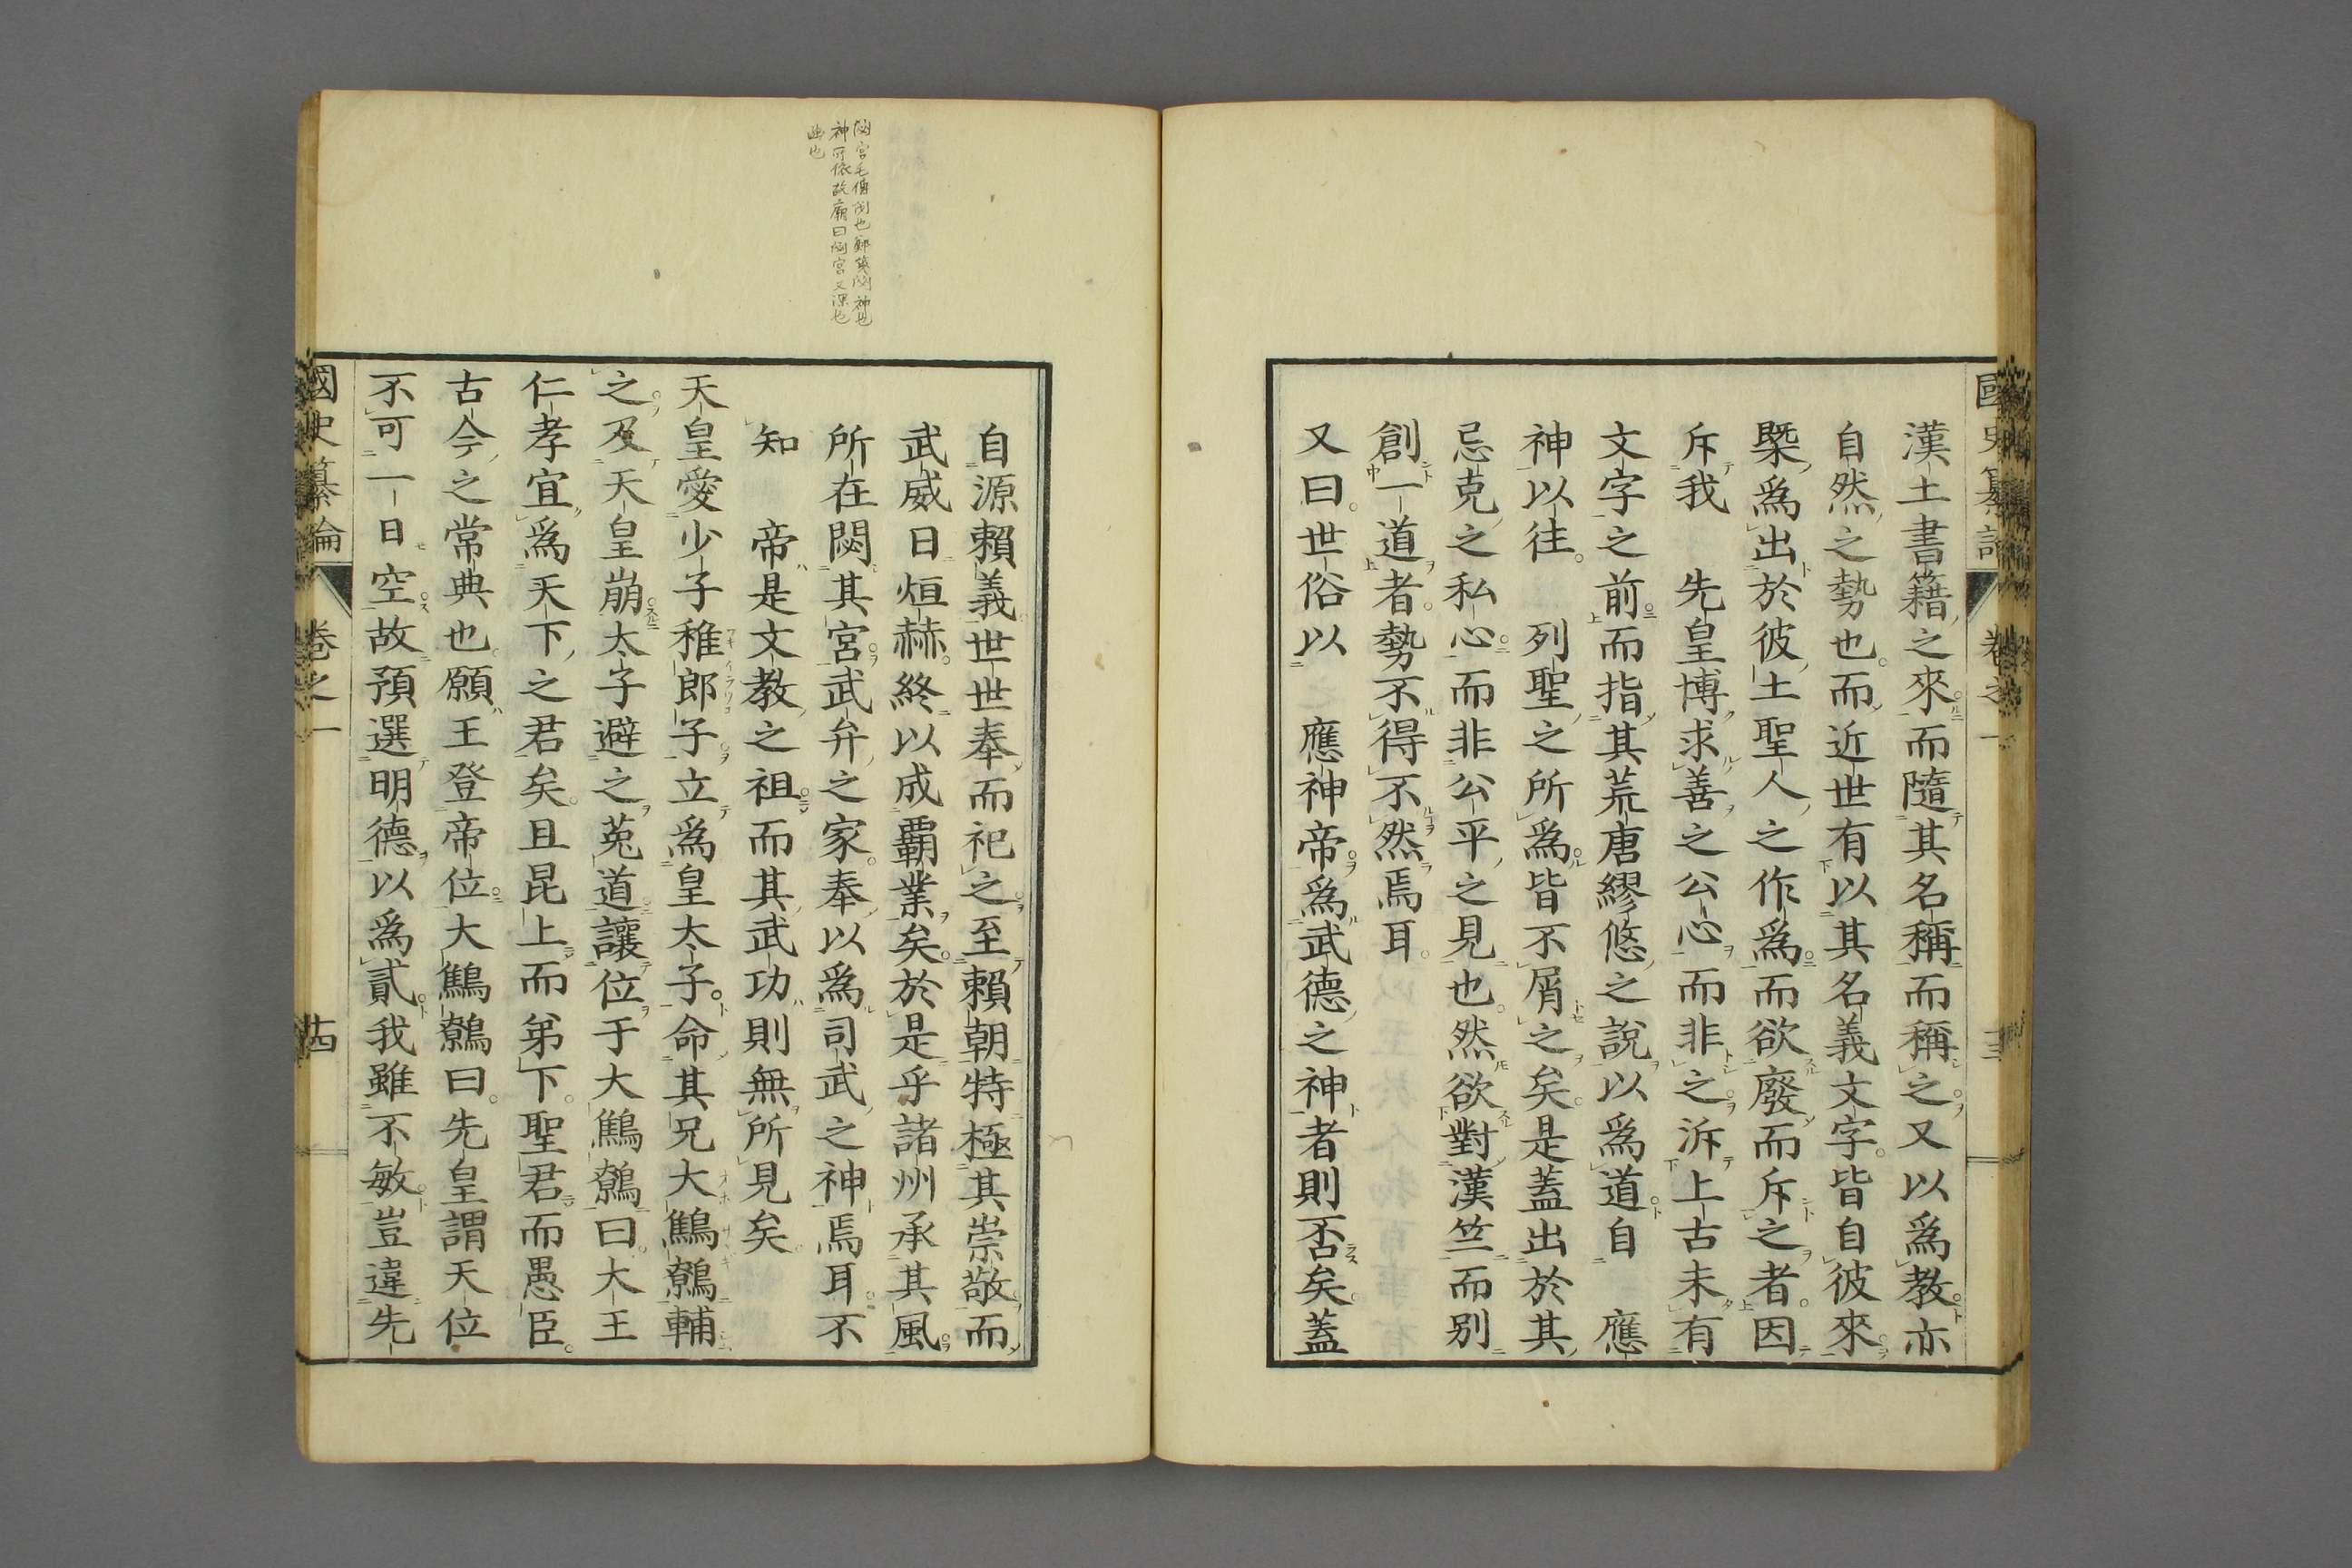 漢土書籍之來而隨其名稱而稱之又以爲教亦
自然之勢也而近世有以其名義文字皆自彼來
槩爲出於彼土聖人之作爲而欲廢而斥之者因
斥我　先皇博求善之公心而非之泝上古未有
文字之前而指其荒唐繆悠之說以爲道自　應
神以往　列聖之所爲皆不屑之矣是蓋出於其
忌克之私心而非公平之見也然欲對漢竺而別
創一道者勢不得不然焉耳
又曰世俗以　應神帝爲武德之神者則否矣蓋
自源賴義世世奉而祀之至賴朝特極其崇敬而
武威日烜赫終以成覇業矣於是乎諸州承其風
所在閟其宮武弁之家奉以爲司武之神焉耳不
知　帝是文教之祖而其武功則無所見矣
天皇愛少子稚郎子立爲皇太子命其兄大鷦鷯輔
之及天皇崩太子避之菟道讓位于大鷦鷯曰大王
仁孝宜爲天下之君矣且昆上而弟下聖君而愚臣
古今之常典也願王登帝位大鷦鷯曰先皇謂天位
不可一日空故預選明德以爲貳我雖不敏豈違先
國史纂論　卷之一　十四
閟宮毛傳閉也鄭箋閟神也
神所依故廟曰閟宮又深也
幽也